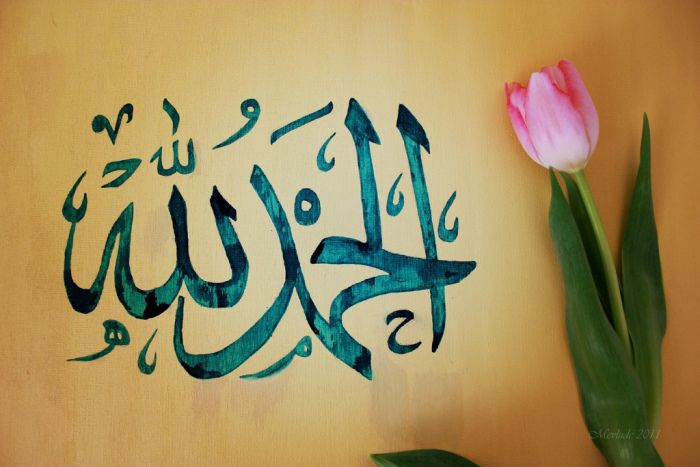 الحمد لله
Mevlude 2011